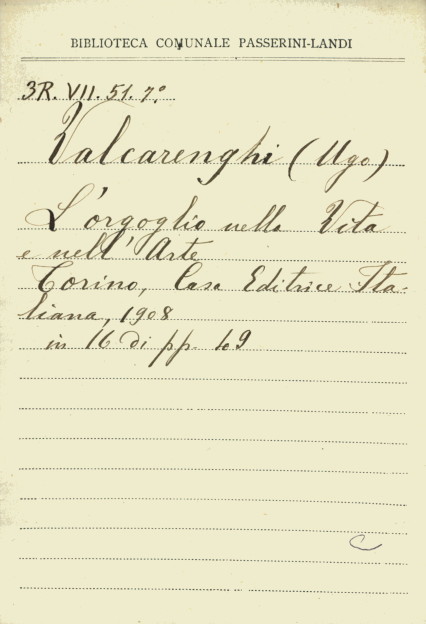 BIBLIOTECA COMUNALE PASSERINI-LANDI
3R. VII. 51. 7º
Valcarenghi (Ugo)
L'orgoglio nella Vita
e nell' Arte
Torino, Casa Editrice Ita-
liana, 1908
in 16 di pp. 49